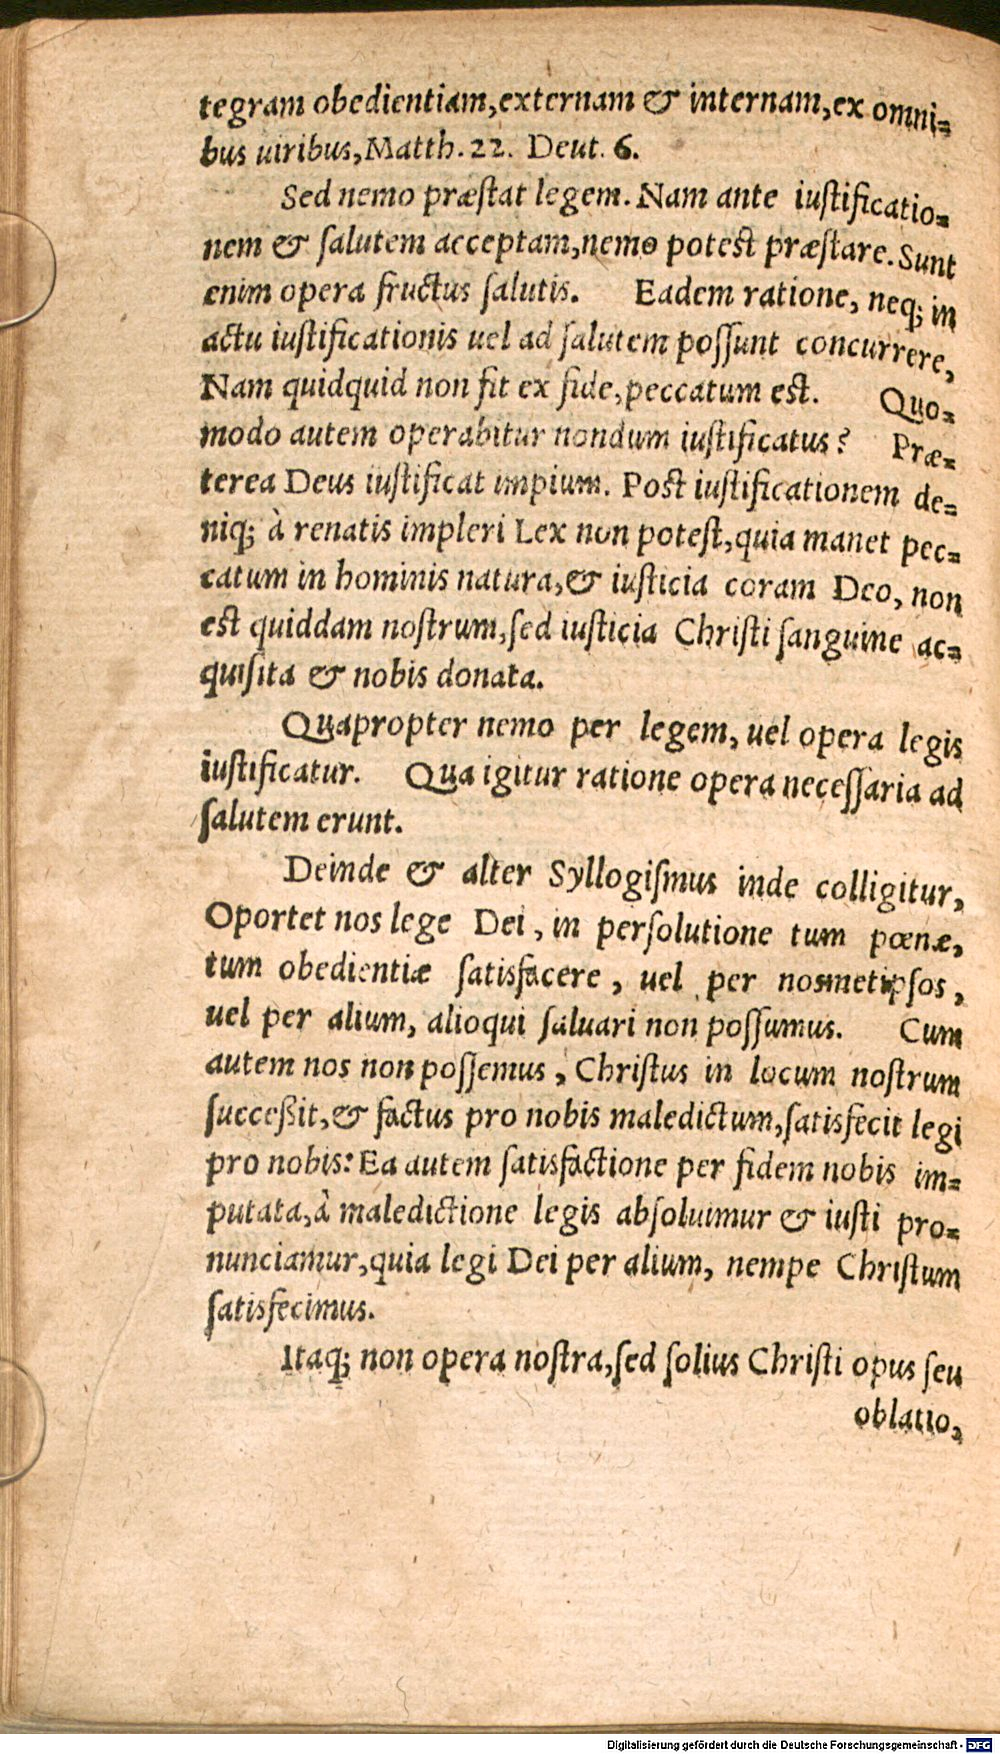 tegram obedientiam,externam & internam,ex omni-
bus uiribus,Matth. 22. Deut. 6.
Sed nemo præſtat legem. Nam ante iuſtificatio-
nem & ſalutem acceptam,nemo poteſt præſtare. Sunt
enim opera fructus ſalutis. Eadem ratione, neq; in
actu iuſtificationis uel ad ſalutem poſſunt concurrere,
Nam quidquid non fit ex fide,peccatum eſt. Quo-
modo autem operabitur nondum iuſtificatus? Præ-
terea Deus iuſtificat impium. Poſt iuſtificationem de-
niq; à renatis impleri Lex non poteſt,quia manet pec-
catum in hominis natura,& iuſticia coram Deo, non
eſt quiddam noſtrum,ſed iuſticia Chriſti ſanguine ac-
quiſita & nobis donata.
Quapropter nemo per legem, uel opera legis
iuſtificatur. Qua igitur ratione opera neceſſaria ad
ſalutem erunt.
Deinde & alter Syllogiſmus inde colligitur,
Oportet nos lege Dei, in perſolutione tum pœnæ,
tum obedientiæ ſatisfacere, uel per nosmetipſos,
uel per alium, alioqui ſaluari non poſſumus. Cum
autem nos non poſſemus, Chriſtus in locum noſtrum
ſucceßit,& factus pro nobis maledictum,ſatisfecit legi
pro nobis: Ea autem ſatisfactione per fidem nobis im-
putata,à maledictione legis abſoluimur & iuſti pro-
nunciamur,quia legi Dei per alium, nempe Chriſtum
ſatisfecimus.
Itaq; non opera noſtra,ſed ſolius Chriſti opus ſeu
oblatio,
Digitalisierung gefördert durch die Deutsche Forschungsgemeinschaft - DFG